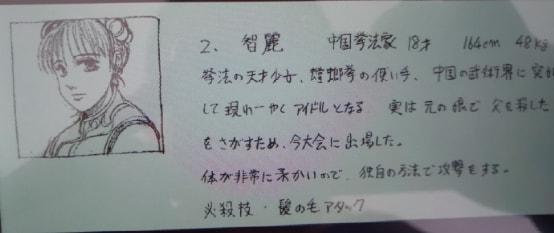 2、智麗 中国拳法家 18才 164cm 48kg
拳法の天才少女、螳螂拳の使い手、中国の武術界に突
して現れ一やくアイドルとなる 実は元の娘で父を殺した
をさがすため、今大会に出場した。
体が非常に柔かいので、独自の方法で攻撃をする。
必殺技・髪の毛アタック